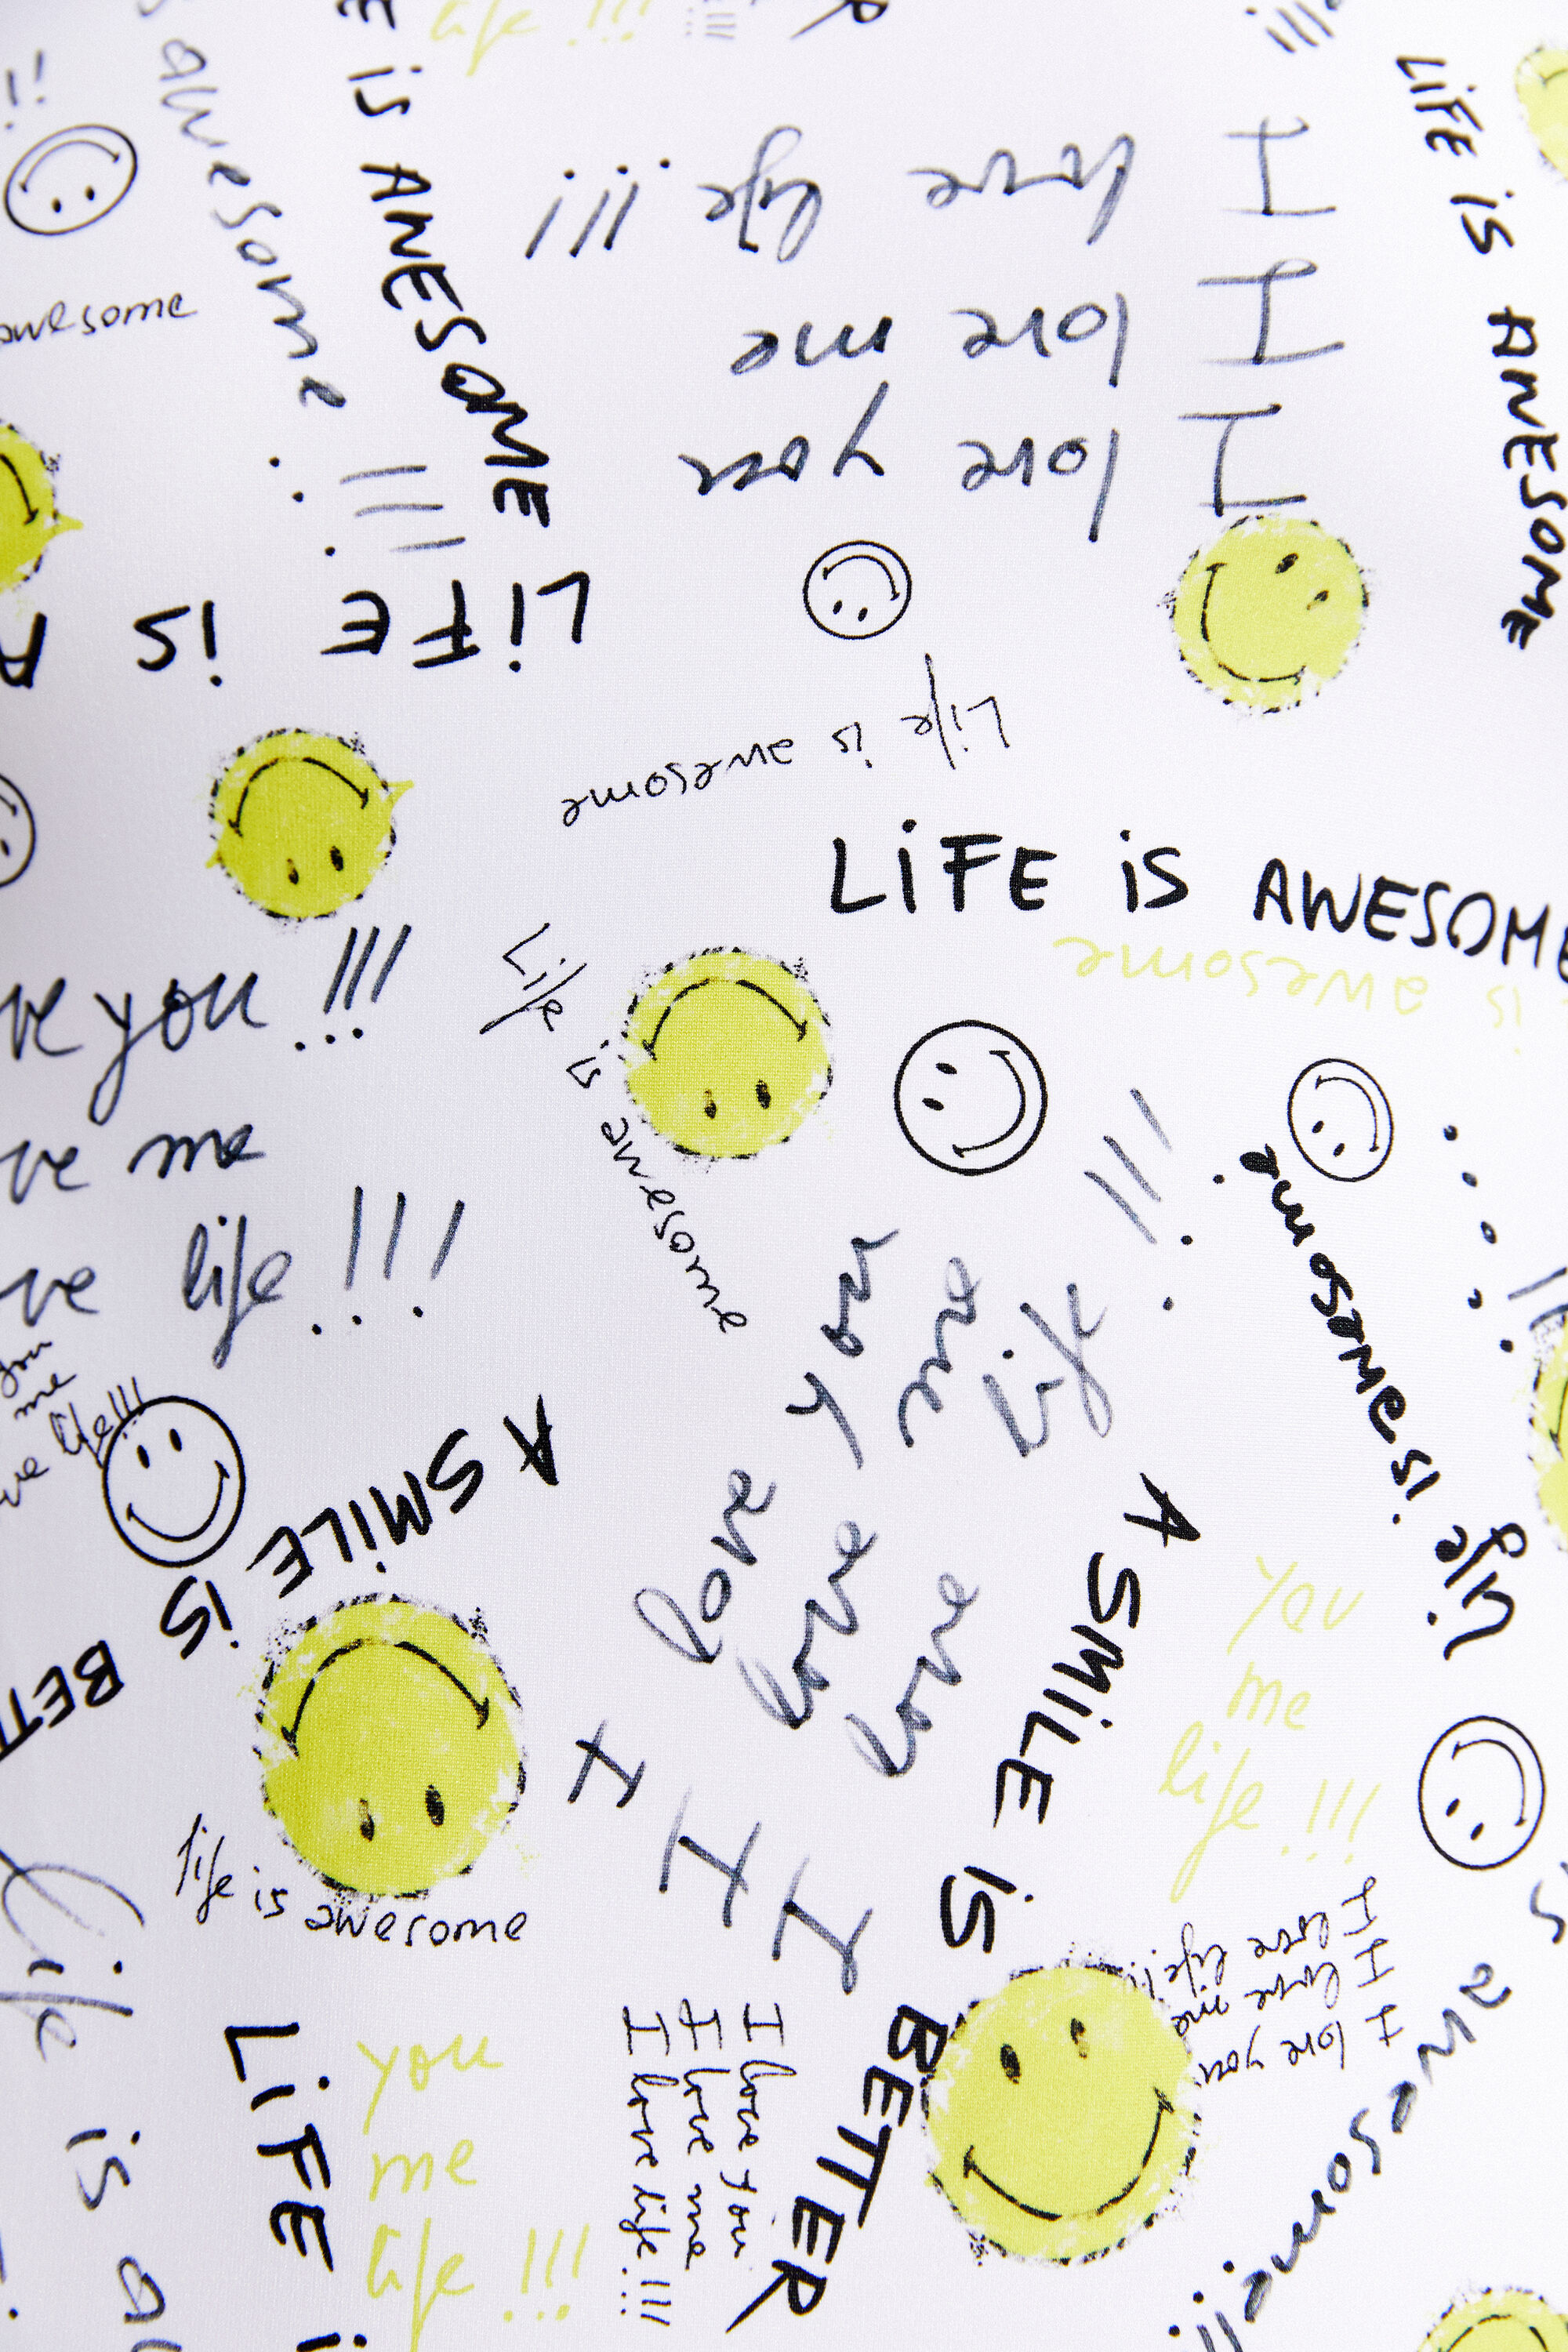 life !!!
awesome !!!
is AWESOME
LiFE is AWESOME
awesome
I love life !!!
I love me
I love you
LiFE is A
Life is awesome
LiFE is AWESOME
is awesome
ve you !!!
ve me
ve life !!!
Life is awesome
you
me
ve life!!!
I love you
I love me
I love life !!!
life is awesome
A SMiLE is BET
A SMiLE is BETTER
you
me
life !!!
life is awesome
I love you
I love me
I love life!!
Life is a
LiFE i
you
me
life !!!
I love you
I love me
I love life !!!
is awesome!!!